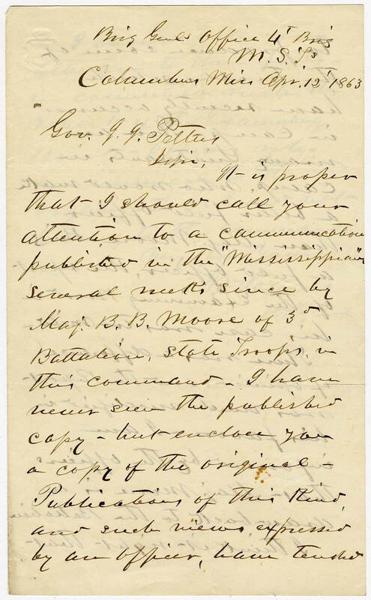 Brig Genls Office 4" Brig
M. S. Ts
Columbus Miss Apr. 12" 1863
Gov. J. J. Pettus
Sir,
It is proper
that I should call your
attention to a communication
published in the "Mississippian"
several weeks since by
Maj. B. B. Moore of 3d
Battalion, State Troops, in
this command - I have
never seen the published
copy - but enclose you
a copy of the original -
Publications of this kind,
and such views expressed
by an officer, have tended